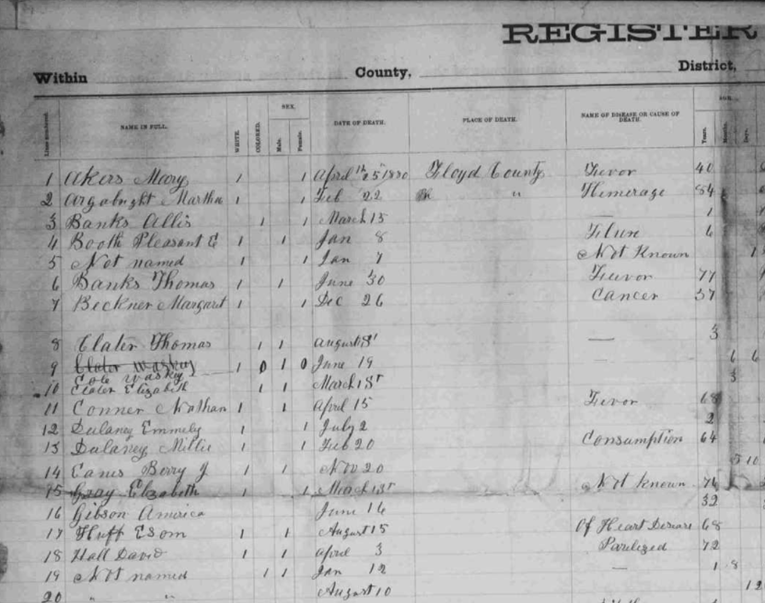 REGISTER
Within County, District,
SEX. AGE.
Lines numbered. NAME IN FULL. WHITE. COLORED. Male. Female. DATE OF DEATH. PLACE OF DEATH. NAME OF DISEASE OR CAUSE OF DEATH. Years. Months. Days.
1 Akers Mary 1 1 April 25 1880 Floyd County Fevor 40
2 Argabright Martha 1 1 Feb 22 " Himerage 84
3 Banks Allis 1 1 March 15 — 1
4 Booth Pleasant E 1 1 Jan 8 Flure 6
5 Not named 1 1 Jan 7 Not Known
6 Banks Thomas 1 1 June 30 Feuvor 77
7 Beckner Margaret 1 1 Dec 26 Cancer 37
8 Clater Thomas 1 1 August 8 — 3
9 Clater Waskey 1 0 1 0 June 19 6 6
Cole Waskey
10 Clater Elizabeth 1 1 March 13 3
11 Conner Nathan 1 1 April 15 Fevor 68
12 Dulaney Emmely 1 1 July 2 2
13 Dulaney Millie 1 1 Feb 20 Consumption 64
14 Eanes Berry J 1 1 Nov 20 3 10
15 Gray Elizabeth 1 1 March 13 Not Known 76
16 Gibson America June 14 32
17 Huff Esom 1 1 August 15 Of Heart Disease 68
18 Hall David 1 1 April 3 Parilized 72
19 Not named 1 1 Jan 12 — 1 8
20 " " August 10 12